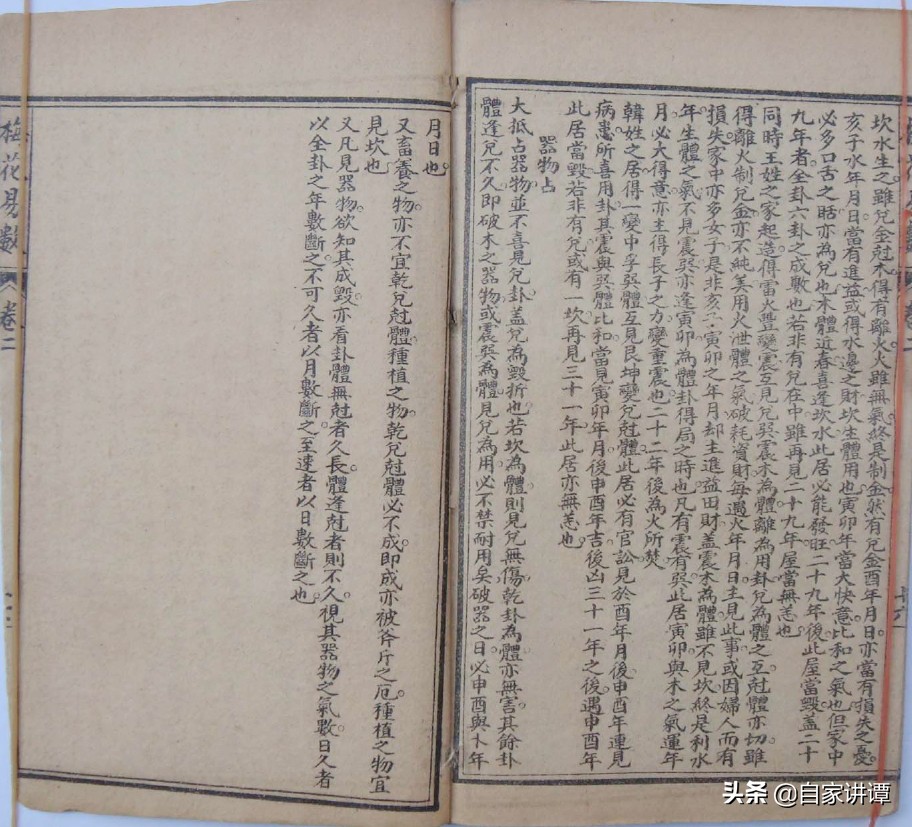 坎水生之雖兌金尅木得有離火火雖無氣終是制金然有兌金酉年月日亦當有損失之憂
亥子水年月日當有進益或得水邊之財坎生體用也寅卯年當大快意比和之氣也但家中
必多口舌之聒亦為兌也木體近春喜逢坎水此居必能發旺二十九年後此屋當毀蓋二十
九年者全卦六卦之成數也若非有兌在中雖再見二十九年屋當無恙也
同時王姓之家起造得雷火豐變震互見兌巽震木為體離為用卦兌為體之互尅體亦切雖
得離火制兌金亦不純美用火泄體之氣破耗資財每遇火年月日主見此事或因婦人而有
損失家中亦多女子是非亥子寅卯之年月却主進益田財蓋震木為體雖不見坎終是利水
年生體之氣不見震巽亦逢寅卯為體卦得局之時也凡有震有巽此居寅卯與木之氣運年
月必大得意亦主得長子之力變重震也二十二年後為火所焚
韓姓之居得一變中孚巽體互見艮坤變兌尅體此居必有官訟見於酉年月後申酉年連見
病患所喜用卦其震與巽體比和當見寅卯年月後申酉年吉後凶三十一年之後遇申酉年
此居當毀若非有兌或有一坎再見三十一年此居亦無恙也
器物占
大抵占器物並不喜見兌卦蓋兌為毀折也若坎為體則見兌無傷乾卦為體亦無害其餘卦
體逢兌不久即破木之器物或震巽為體見兌為用必不禁耐用矣破器之日必申酉與卜年
月日也
又畜養之物亦不宜乾兌尅體種植之物乾兌尅體必不成即成亦被斧斤之厄種植之物宜
見坎也
又凡見器物欲知其成毀亦看卦體無尅者久長體逢尅者則不久視其器物之氣數日久者
以全卦之年數斷之不可久者以月數斷之至速者以日數斷之也
梅花易數
卷二
头条 @自家讲谭